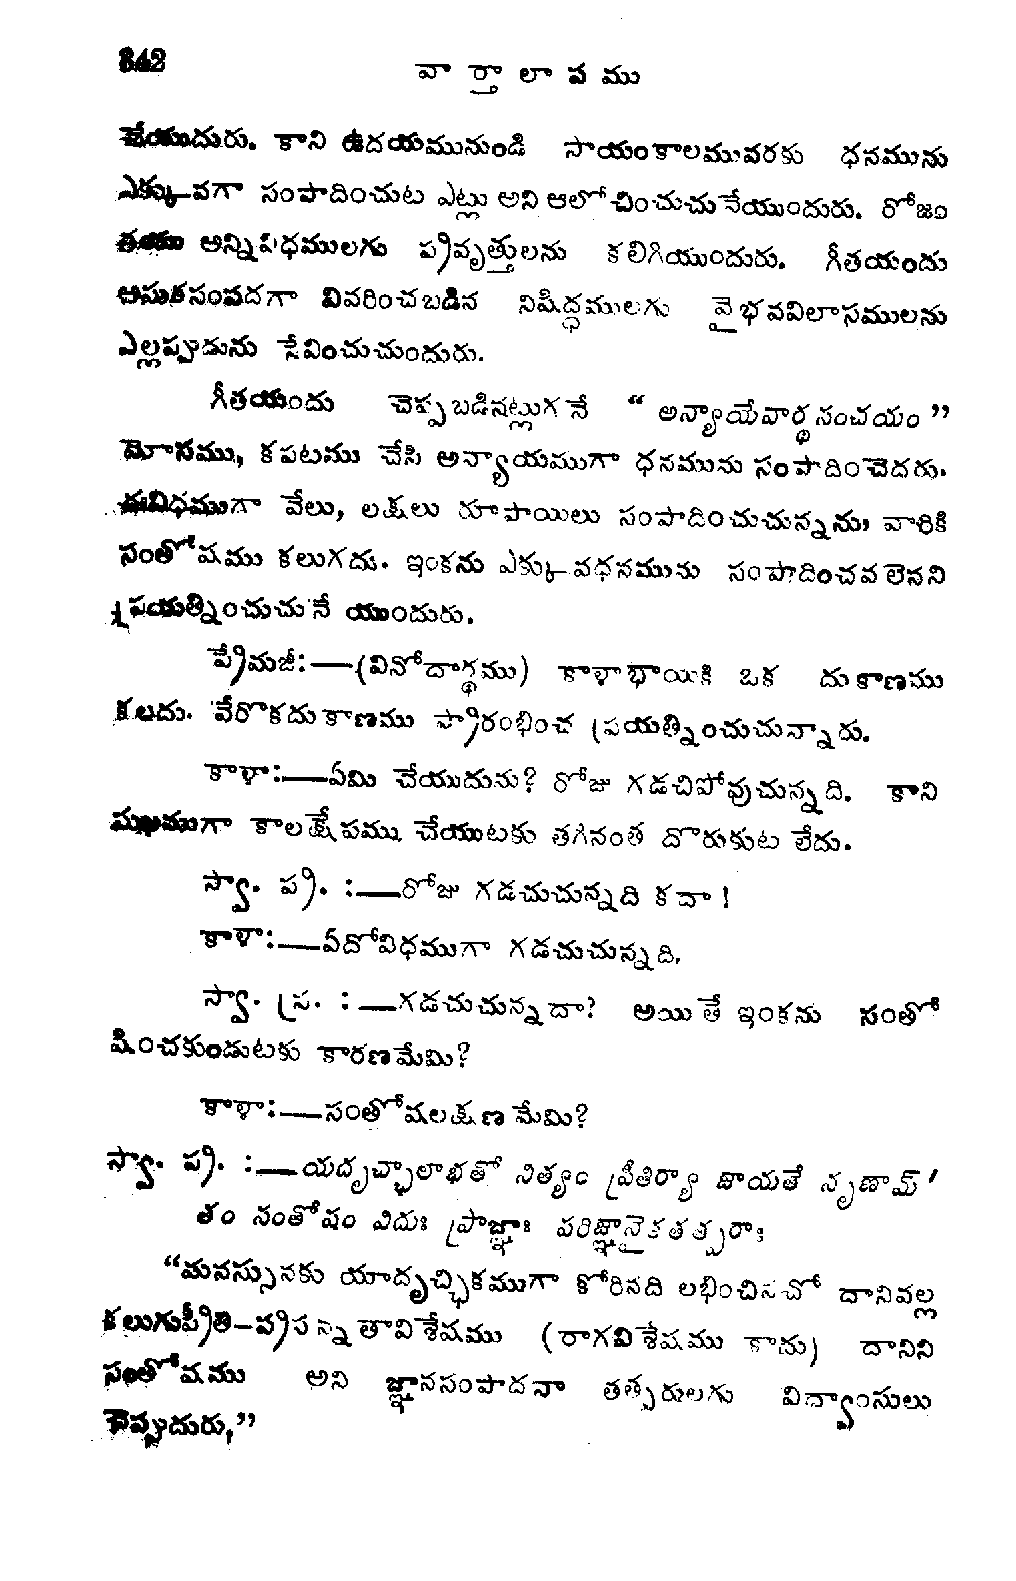 342
వార్తాలాపము
చేయుదురు. కాని ఉదయమునుండి సాయంకాలమువరకు ధనమును
ఎక్కువగా సంపాదించుట ఎట్లు అని ఆలోచించుచునేయుందురు. రోజం
తయు అన్నివిధములగు ప్రవృత్తులను కలిగియుందురు. గీతయందు
ఆసురసంపదగా వివరించబడిన నిషిద్ధములగు వైభవవిలాసములను
ఎల్లప్పుడును సేవించుచుందురు.
గీతయందు చెప్పబడినట్లుగనే “ అన్యాయేవార్థసంచయం ”
మోసము, కపటము చేసి అన్యాయముగా ధనమును సంపాదించెదరు.
ఈవిధముగా వేలు, లక్షలు రూపాయిలు సంపాదించుచున్నను, వారికి
సంతోషము కలుగదు. ఇంకను ఎక్కువధనమును సంపాదించవలెనని
ప్రయత్నించుచునే యుందురు.
ప్రేమజీ:—(వినోదార్థము) కాళాభాయికి ఒక దుకాణము
కలదు. వేరొకదుకాణము ప్రారంభించ ప్రయత్నించుచున్నారు.
కాళా:—ఏమి చేయుదును? రోజు గడచిపోవుచున్నది. కాని
సుఖముగా కాలక్షేపము చేయుటకు తగినంత దొరుకుట లేదు.
స్వా. ప్ర. :—రోజు గడచుచున్నది కదా !
కాళా:—ఏదోవిధముగా గడచుచున్నది.
స్వా. ప్ర. :—గడచుచున్నదా? అయితే ఇంకను సంతో
షించకుండుటకు కారణమేమి?
కాళా:—సంతోషలక్షణ మేమి?
స్వా. ప్ర. :—యదృచ్ఛాలాభతో నిత్యం ప్రీతిర్యా జాయతే నృణామ్ ’
తం సంతోషం విదుః ప్రాజ్ఞాః పరిజ్ఞానైకతత్పరాః
“మనస్సునకు యాదృచ్ఛికముగా కోరినది లభించినచో దానివల్ల
కలుగుప్రీతి–ప్రసన్నతావిశేషము (రాగవిశేషము కాదు) దానిని
సంతోషము అని జ్ఞానసంపాదనా తత్పరులగు విద్వాంసులు
చెప్పుదురు,”